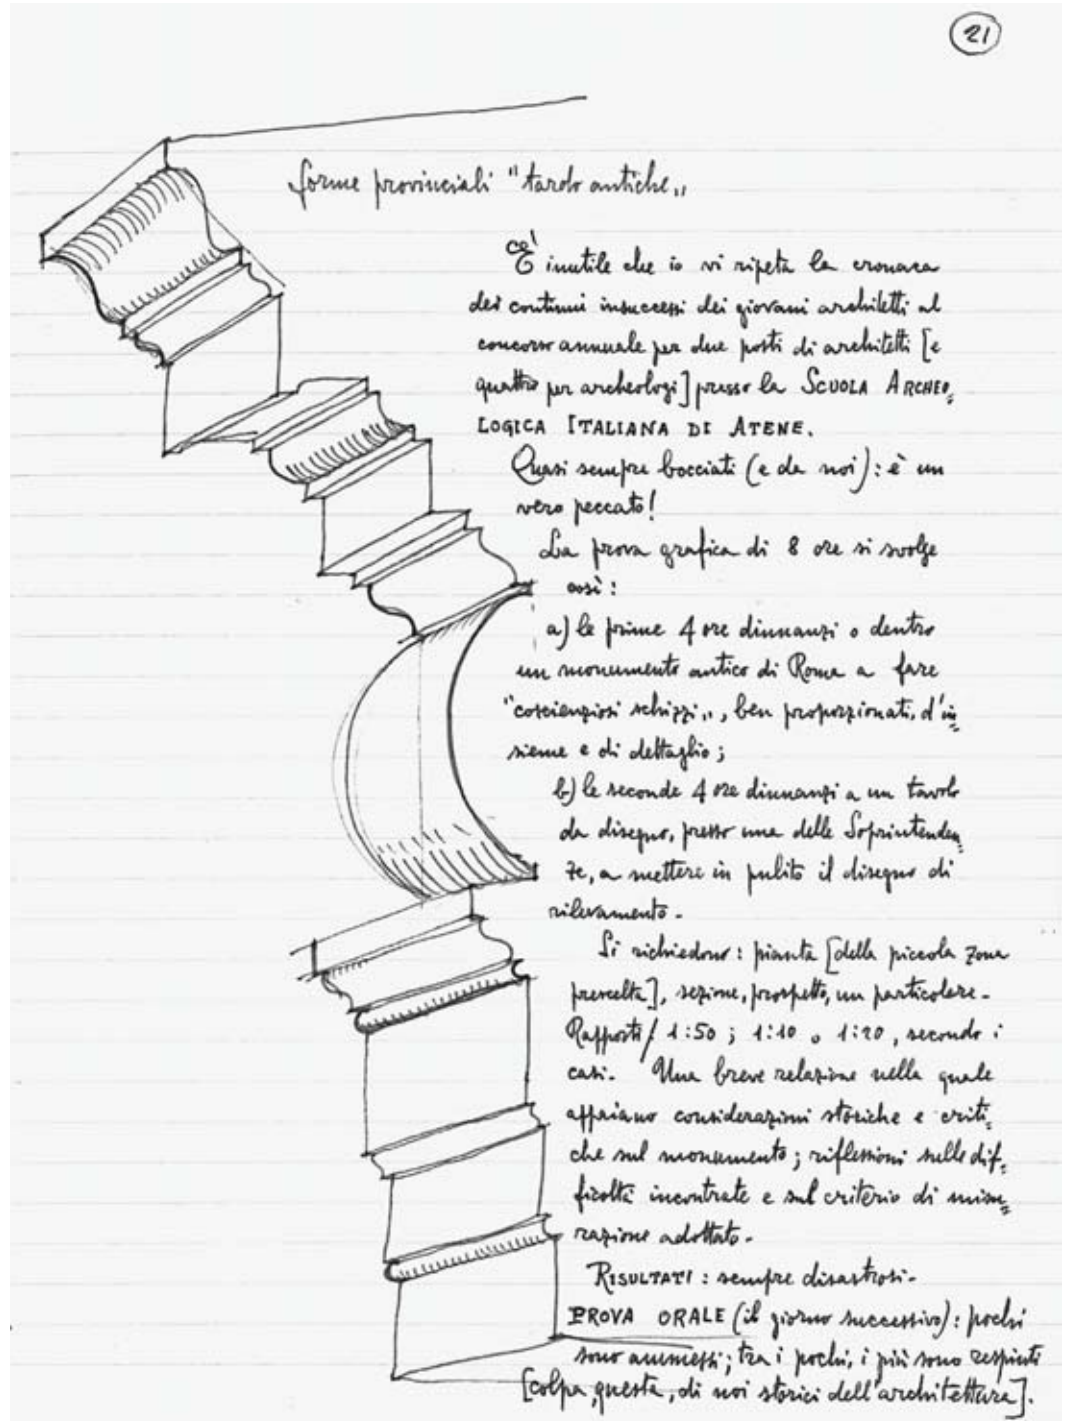 21
forme provinciali "tardo antiche„
È inutile che io vi ripeta la cronaca
dei continui insuccessi dei giovani architetti al
concorso annuale per due posti di architetti [e
quattro per archeologi] presso la SCUOLA ARCHEO=
LOGICA ITALIANA DI ATENE.
Quasi sempre bocciati (e da noi): è un
vero peccato!
La prova grafica di 8 ore si svolge
così:
a) le prime 4 ore dinnanzi o dentro
un monumento antico di Roma a fare
"coscienziosi schizzi„, ben proporzionati, d'in=
sieme e di dettaglio;
b) le seconde 4 ore dinnanzi a un tavolo
da disegno, presso una delle Soprintenden=
ze, a mettere in pulito il disegno di
rilevamento.
Si richiedono: pianta [della piccola zona
prescelta], sezione, prospetto, un particolare.
Rapporti / 1:50; 1:10 o 1:20, secondo i
casi. Una breve relazione nella quale
appaiano considerazioni storiche e criti=
che sul monumento; riflessioni sulle dif=
ficoltà incontrate e sul criterio di misu=
razione adottato.
RISULTATI: sempre disastrosi.
PROVA ORALE (il giorno successivo): pochi
sono ammessi; tra i pochi, i più sono respinti
[colpa, questa, di noi storici dell'architettura].